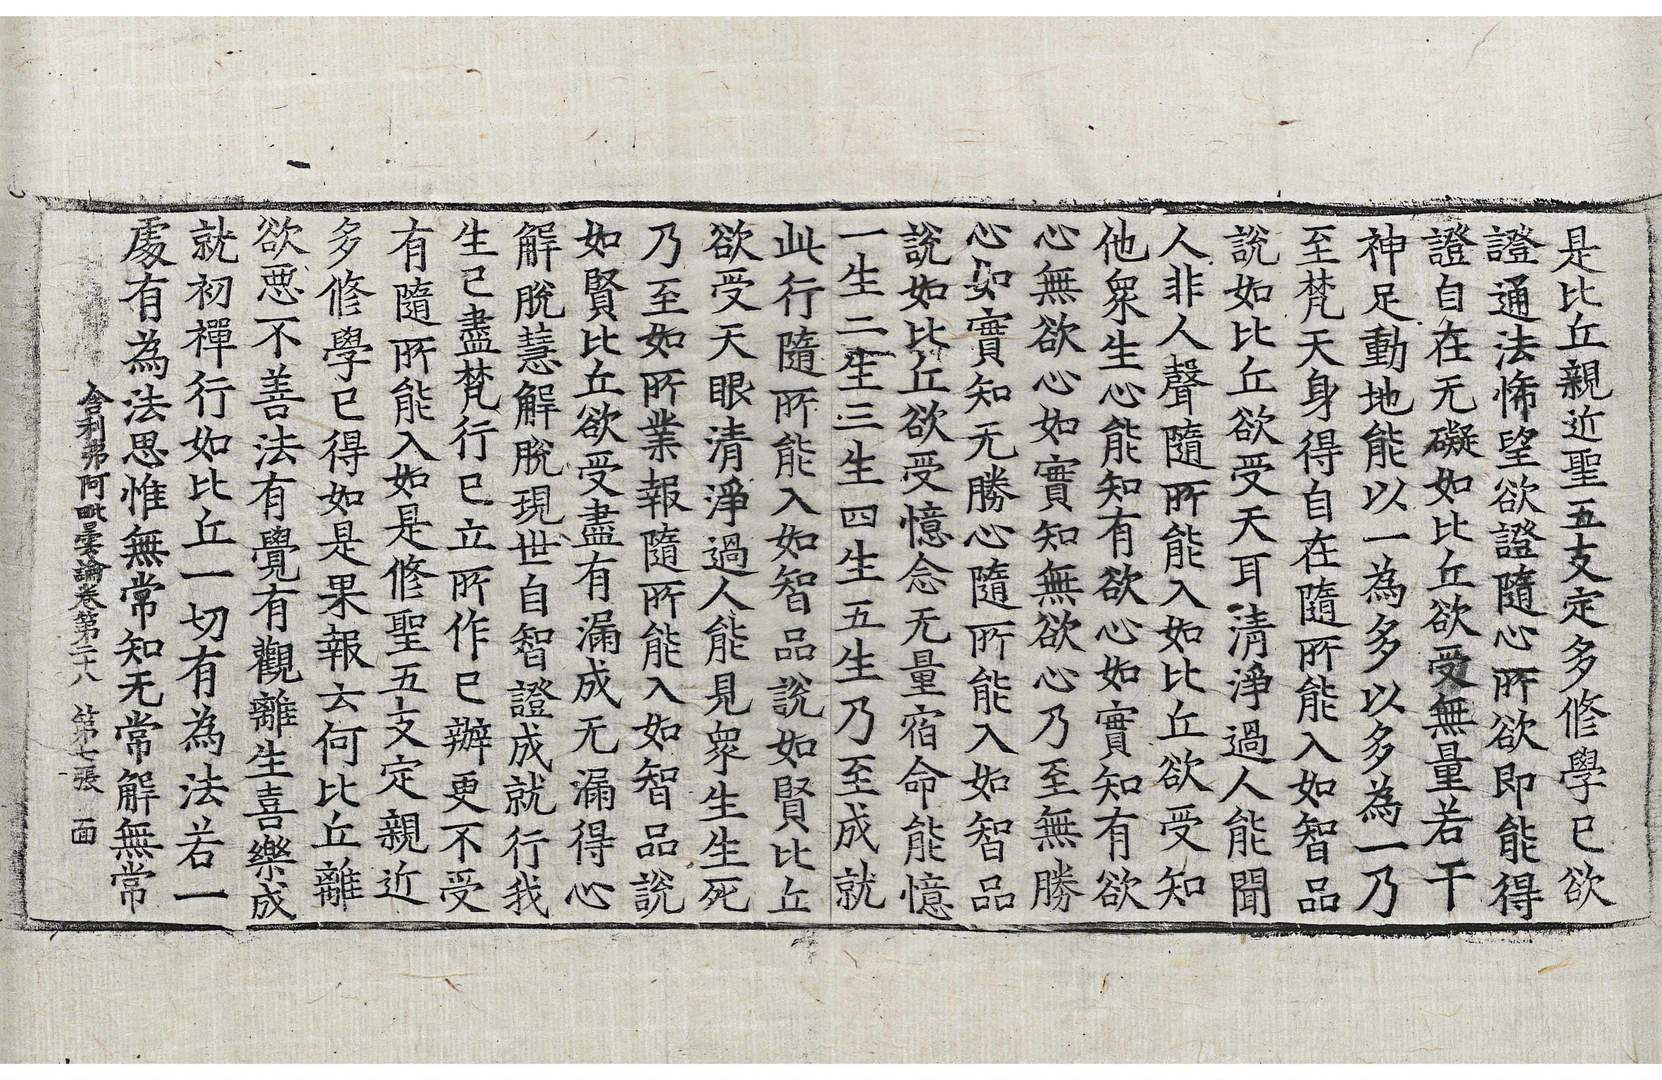 是比丘親近聖五支定多修學已欲
證通法悕望欲證隨心所欲即能得
證自在无礙如比丘欲受無量若干
神足動地能以一為多以多為一乃
至梵天身得自在隨所能入如智品
說如比丘欲受天耳清淨過人能聞
人非人聲隨所能入如比丘欲受知
他衆生心能知有欲心如實知有欲
心無欲心如實知無欲心乃至無勝
心如實知无勝心隨所能入如智品
說如比丘欲受憶念无量宿命能憶
一生二生三生四生五生乃至成就
此行隨所能入如智品說如賢比丘
欲受天眼清淨過人能見衆生生死
乃至如所業報隨所能入如智品說
如賢比丘欲受盡有漏成无漏得心
解脫慧解脫現世自智證成就行我
生已盡梵行已立所作已辦更不受
有隨所能入如是修聖五支定親近
多修學已得如是果報云何比丘離
欲惡不善法有覺有觀離生喜樂成
就初禪行如比丘一切有為法若一
處有為法思惟無常知无常解無常
舍利弗阿毗曇論卷第二十八 第七張 面